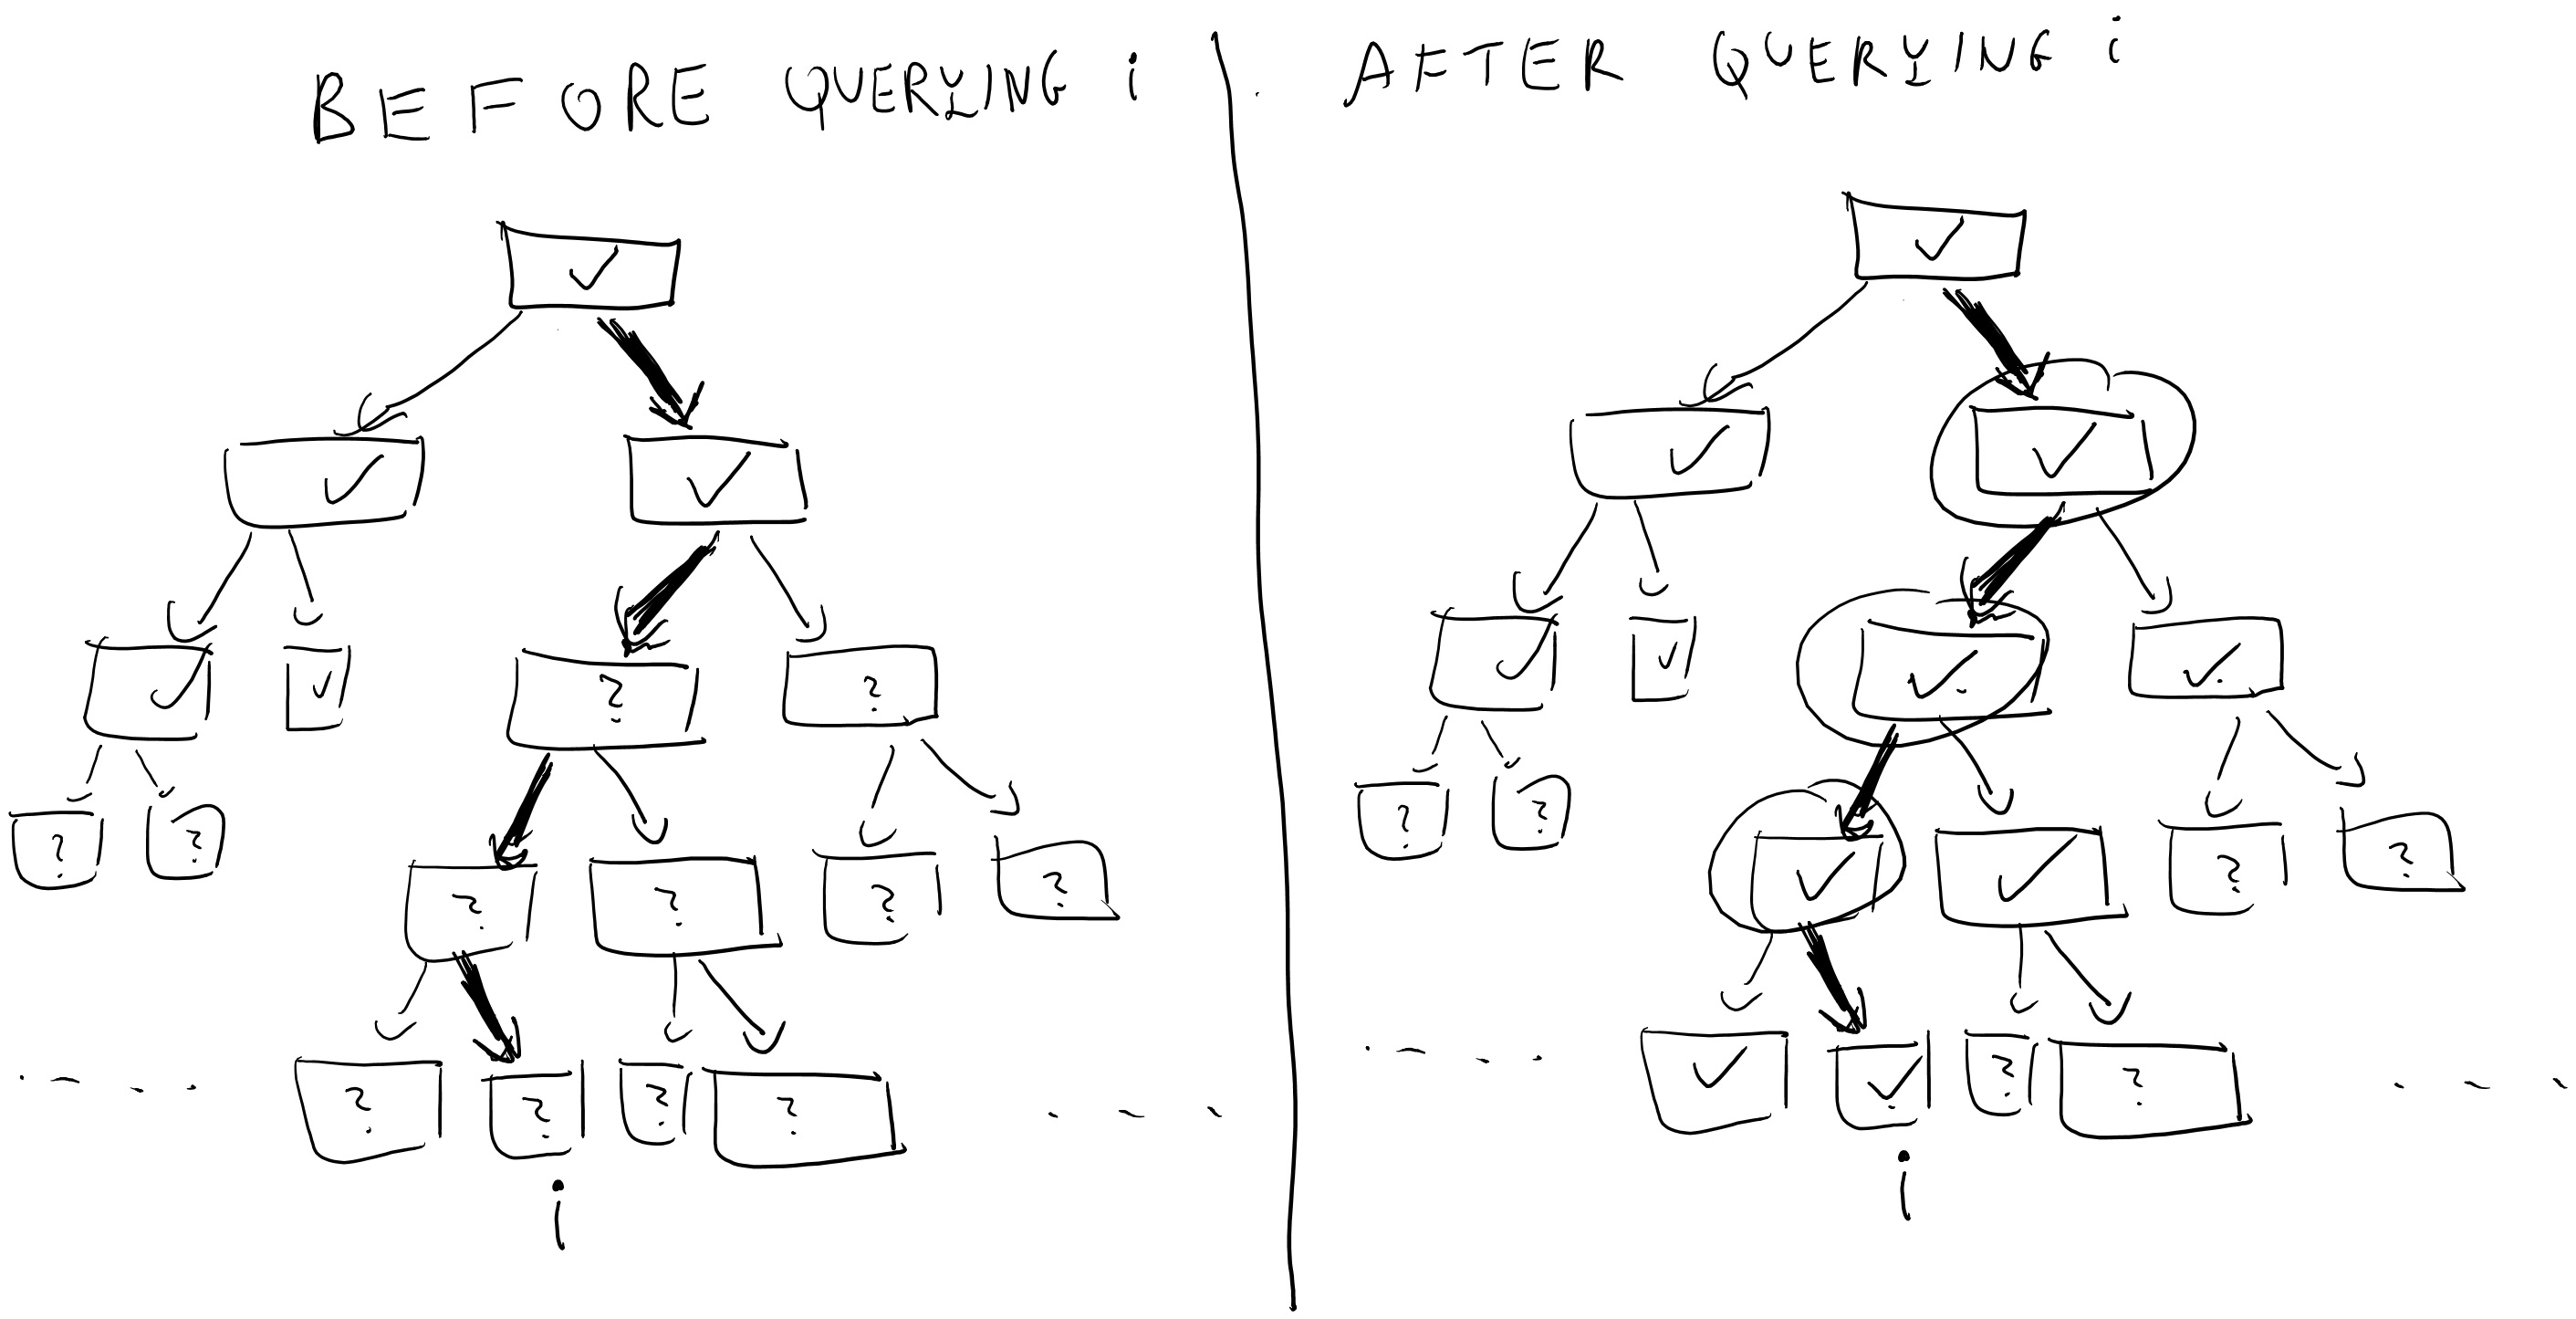 BEFORE QUERYING i
AFTER QUERYING i
✓
✓ ✓
✓ ✓ ? ?
? ? ? ? ? ?
? ? ? ?
i
✓
✓ ✓
✓ ✓ ✓ ✓
? ? ✓ ✓ ? ?
✓ ✓ ? ?
i